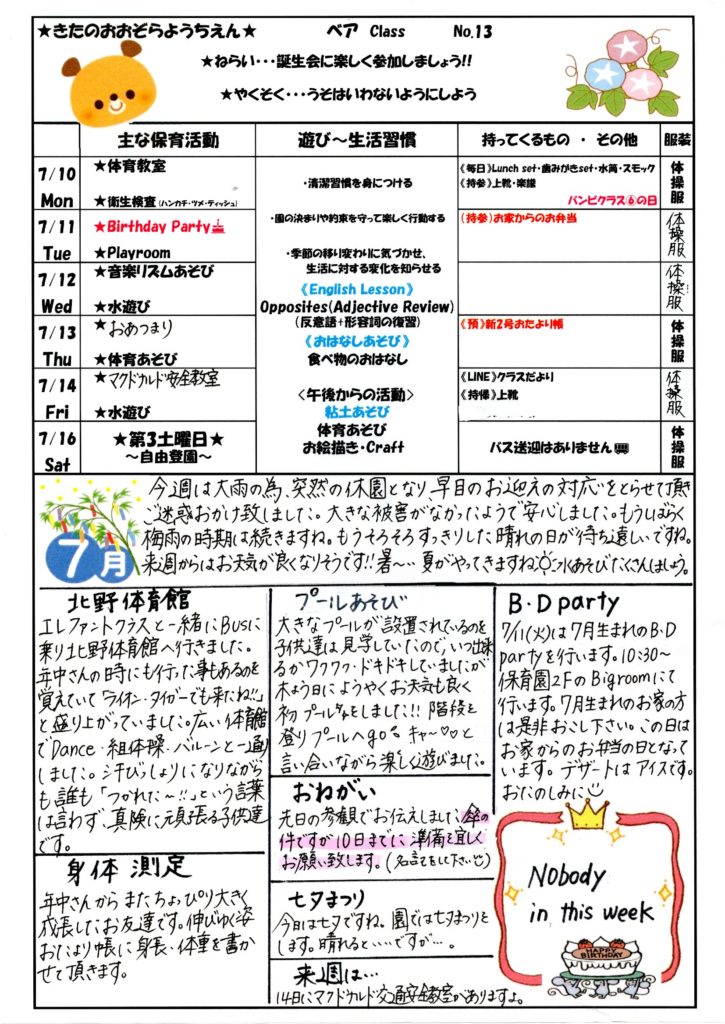 ★きたのおおぞらようちえん★ ベア Class No.13
★ねらい・・・誕生会に楽しく参加しましょう!!
★やくそく・・・うそはいわないようにしよう
主な保育活動 遊び～生活習慣 持ってくるもの ・ その他 服装
7/10 Mon
★体育教室
★衛生検査(ハンカチ・ツメ・ティッシュ)
・清潔習慣を身につける
《毎日》Lunch set・歯みがきset・水筒・スモック
《持参》上靴・楽譜
バンビクラス⑥の日
体操服
7/11 Tue
★Birthday Party
★Playroom
・園の決まりや約束を守って楽しく行動する
・季節の移り変わりに気づかせ、
生活に対する変化を知らせる
(持参)お家からのお弁当
体操服
7/12 Wed
★音楽リズムあそび
★水遊び
《English Lesson》
Opposites(Adjective Review)
(反意語+形容詞の復習)
体操服
7/13 Thu
★おあつまり
★体育あそび
《おはなしあそび》
食べ物のおはなし
《預》新2号おたより帳
体操服
7/14 Fri
★マクドナルド安全教室
★水遊び
<午後からの活動>
粘土あそび
体育あそび
お絵描き・Craft
《LINE》クラスだより
《持帰》上靴
体操服
7/16 Sat
★第3土曜日★
～自由登園～
バス送迎はありません
体操服
7月
今週は大雨の為、突然の休園となり、早目のお迎えの対応をとらせて頂き
ご迷惑おかけ致しました。大きな被害がなかったようで安心しました。もうしばらく
梅雨の時期は続きますね。もうそろそろすっきりした晴れの日が待ち遠しいですね。
来週からはお天気が良くなりそうです!!暑～い夏がやってきますね 水あそびたくさんしましょう。
北野体育館
エレファントクラスと一緒にBusに
乗り北野体育館へ行きました。
年中さんの時にも行った事もあるのを
覚えていて「ライオン・タイガーでも来たね!!」
と盛り上がっていました。広い体育館
でDance・組体操・バルーンと一通り
しました。汗びっしょりになりながら
も誰も「つかれた～!!」という言葉
は言わず、真険に頑張る子供達
です。
身体測定
年中さんからまたちょっぴり大きく
成長したお友達です。伸びゆく姿
おたより帳に身長・体重を書か
せて頂きます。
プールあそび
大きなプールが設置されているのを
子供達は見学していたので、いつ出来
るかワクワク・ドキドキしていましたが
木よう日にようやくお天気も良く
初プールをしました!! 階段を
登りプールへgo!! キャー♡♡と
言い合いながら楽しく遊びました。
おねがい
先日の参観でお伝えしました、傘の
件ですが10日までに準備を宜しく
お願い致します。(名前を記して下さい)
七夕まつり
今日は七夕ですね。園では七夕まつりを
します。晴れると・・・・ですが・・・。
来週は・・・
14日にマクドナルド交通安全教室がありますよ。
B・D party
7/11(火)は7月生まれのB・D
partyを行います。10:30～
保育園2FのBigroomにて
行います。7月生まれのお家の方
は是非おこし下さい。この日は
お家からのお弁当の日となって
います。デザートはアイスです。
おたのしみに
Nobody
in this week
HAPPY BIRTHDAY